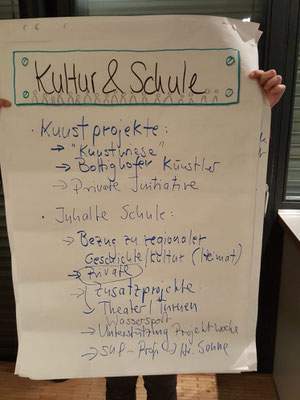 Kultur & Schule
• Kunstprojekte:
→ "Kunstwiese"
→ Bottighofer Künstler
→ Private Initiative
• Inhalte Schule:
→ Bezug zu regionaler
Geschichte/Kultur (Heimat)
→ Private
→ Zusatzprojekte
Theater/Turnen
Wassersport
→ Unterstützung Projektwoche
→ SUP-Profi → Hr. Sohne